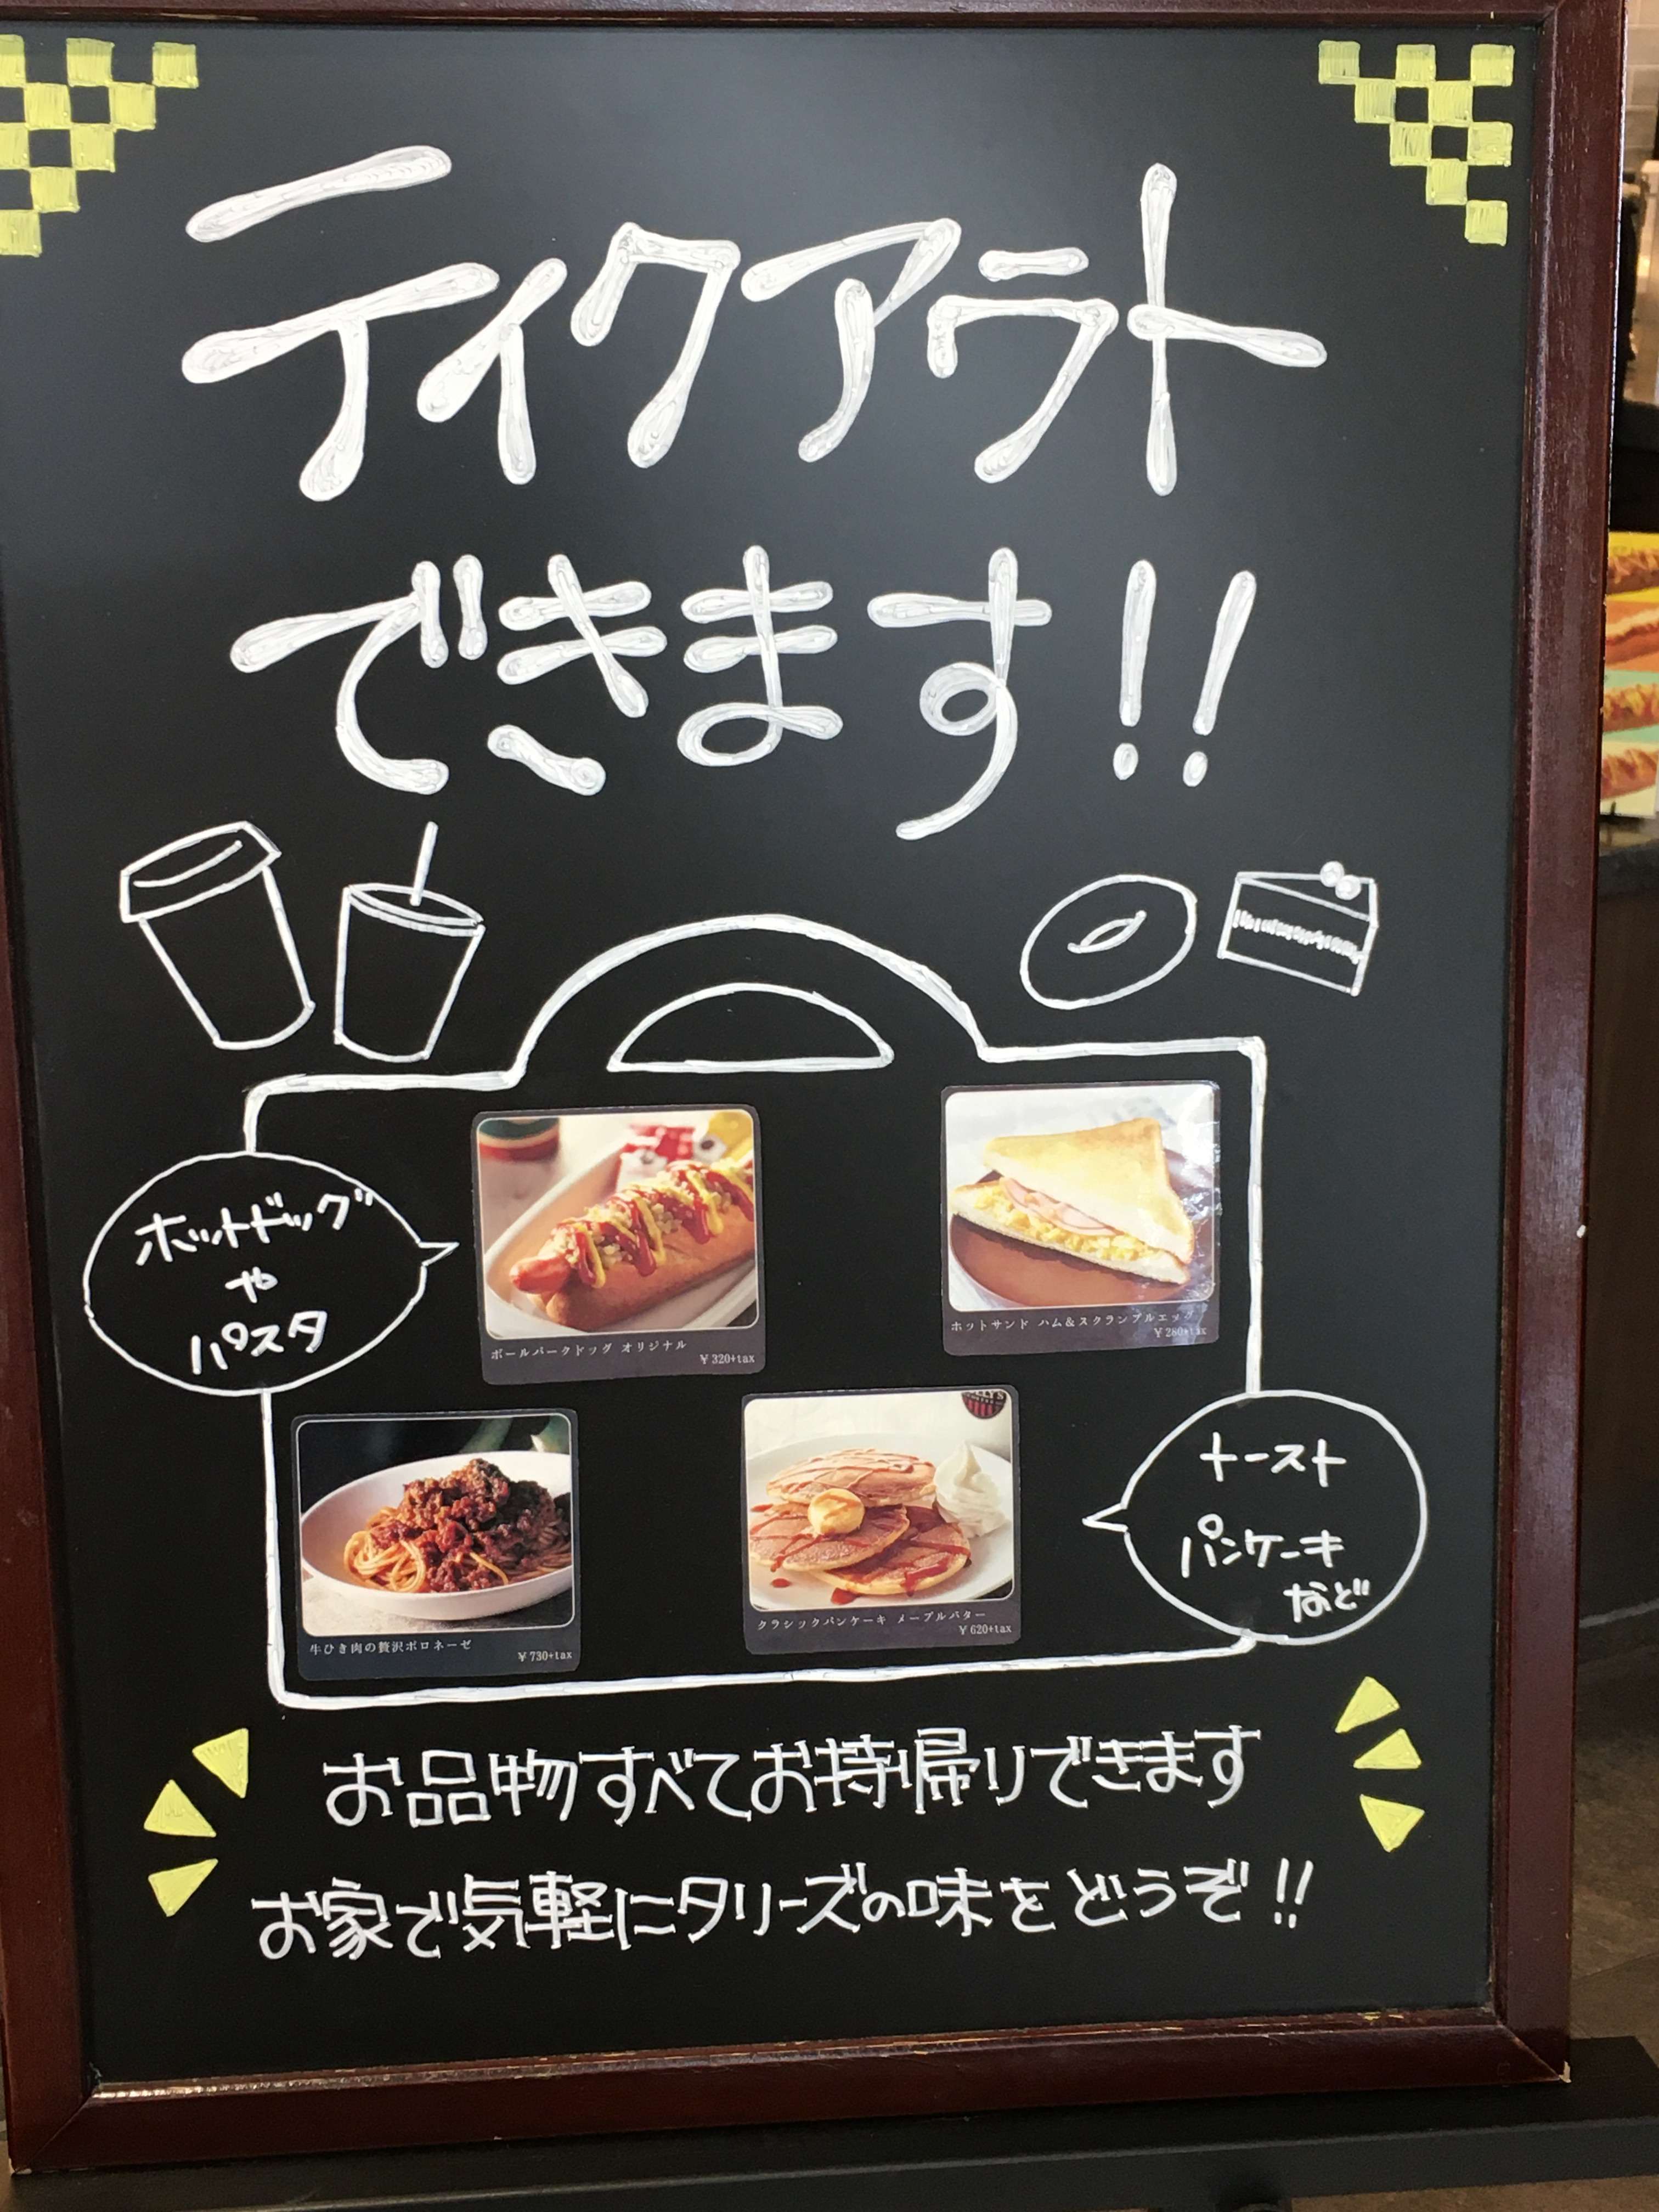 テイクアウト
できます!!
ホットドッグ
や
パスタ
ボールパークドッグ オリジナル
¥320+tax
ホットサンド ハム&スクランブルエッグ
¥280+tax
牛ひき肉の贅沢ボロネーゼ
¥730+tax
クラシックパンケーキ メープルバター
¥620+tax
トースト
パンケーキ
など
お品物すべてお持帰りできます
お家で気軽にタリーズの味をどうぞ!!